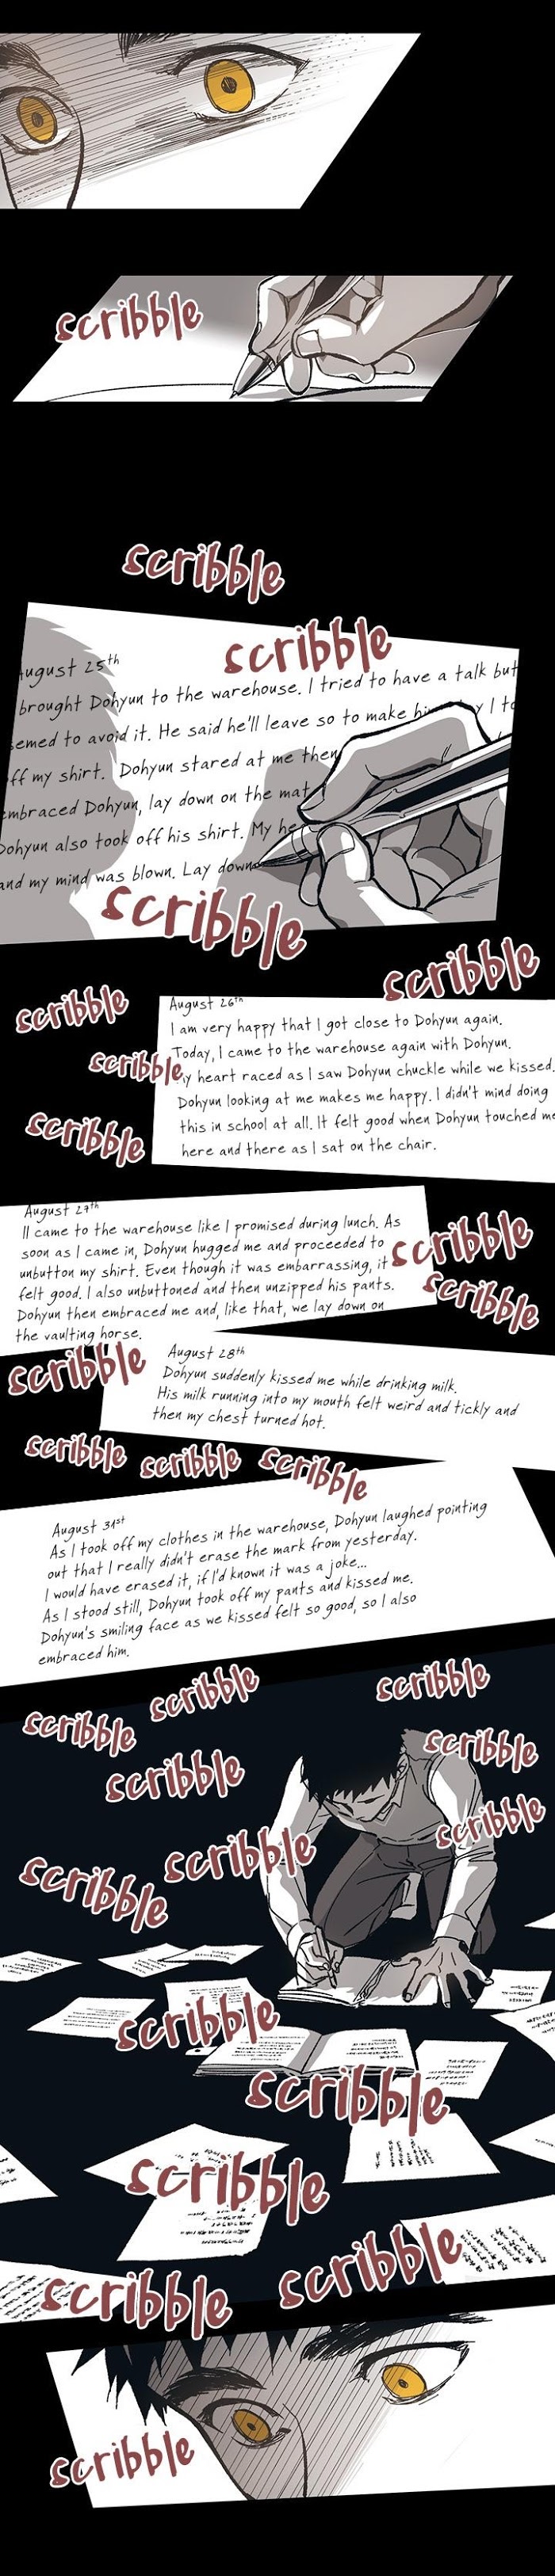 scribble
scribble
scribble
ugust 25th
brought Dohyun to the warehouse. I tried to have a talk but
emed to avoid it. He said he'll leave so to make hi y I to
ff my shirt. Dohyun stared at me then
mbraced Dohyun, lay down on the mat
Dohyun also took off his shirt. My he
and my mind was blown. Lay down
scribble
scribble
scribble
August 26th
I am very happy that I got close to Dohyun again.
Today, I came to the warehouse again with Dohyun.
scribble
y heart raced as I saw Dohyun chuckle while we kissed.
Dohyun looking at me makes me happy. I didn't mind doing
scribble
this in school at all. It felt good when Dohyun touched me
here and there as I sat on the chair.
August 27th
Il came to the warehouse like I promised during lunch. As
soon as I came in, Dohyun hugged me and proceeded to
scribble
unbutton my shirt. Even though it was embarrassing, it
felt good. I also unbuttoned and then unzipped his pants.
scribble
Dohyun then embraced me and, like that, we lay down on
the vaulting horse.
scribble
August 28th
Dohyun suddenly kissed me while drinking milk.
His milk running into my mouth felt weird and tickly and
then my chest turned hot.
scribble
scribble
scribble
August 31st
As I took off my clothes in the warehouse, Dohyun laughed pointing
out that I really didn't erase the mark from yesterday.
I would have erased it, if I'd known it was a joke...
As I stood still, Dohyun took off my pants and kissed me.
Dohyun's smiling face as we kissed felt so good, so I also
embraced him.
scribble
scribble
scribble
scribble
scribble
scribble
scribble
scribble
scribble
scribble
scribble
scribble
scribble
scribble